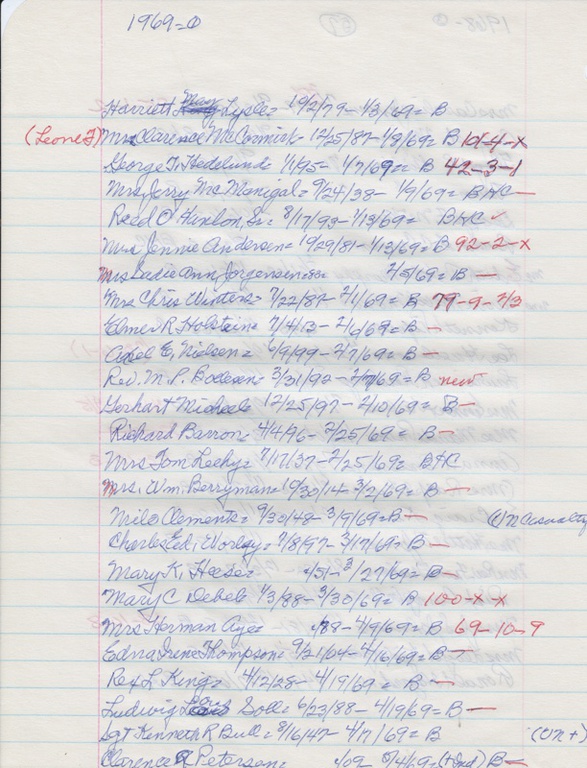 1969-0
Harriett May Lysle= 10/2/79- 1/3/69= B
(Leone F) Mrs Clarence McCormick= 12/25/87- 1/9/69= B 101-4-x
George T. Hedelund= 1/1/95- 1/7/69= B 42-3-1
Mrs Jerry Mc Manigal= 9/24/38- 1/9/69= B&C —
Reed O. Hinlon, Sr.= 8/17/93- 1/13/69= B&C
Mrs Jennie Andersen= 10/29/81- 1/13/69= B 92-2-x
Mrs Sadie Ann Jorgensen= 2/5/69= B —
Mrs Chris Winters= 7/22/87- 2/1/69= B 79-9-2/3
Elmer R. Holstein= 7/4/13- 2/6/69= B —
Axel E, Nielsen= 6/9/99- 2/7/69= B —
Rev. M. P. Bodeen= 3/31/92- 2/7/69= B new
Gerhart Michael= 12/25/97- 2/10/69= B —
Richard Barron= 4/4/96- 2/25/69= B —
Mrs Tom Leahy= 7/17/37- 2/25/69= B&C
Mrs. Wm. Berryman= 10/30/14- 3/2/69= B —
Milo Clements= 9/30/48- 3/9/69= B — (VN Casualty
Charles Ed. Worley= 7/8/97- 3/17/69= B —
Mary K. Heese= /51- 3/27/69= B —
Mary C Debel= 1/3/88- 3/30/69= B 100-x-x
Mrs Herman Aye= /88- 4/9/69= B 69-10-9
Edna Irene Thompson= 9/21/04- 4/16/69= B —
Rex L King= 4/12/28- 4/19/69= B —
Ludwig Soll= 6/23/88- 4/19/69= B —
Sgt Kenneth R Bull= 8/16/47- 4/7/69= B (VN+)
Clarence R Peterson= /09- B —